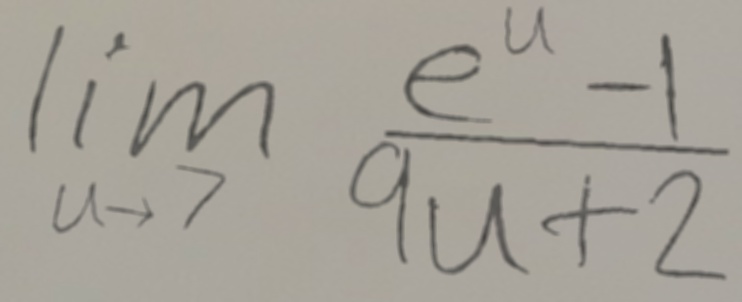 \lim_{u \to 7} \frac{e^u - 1}{9u + 2}